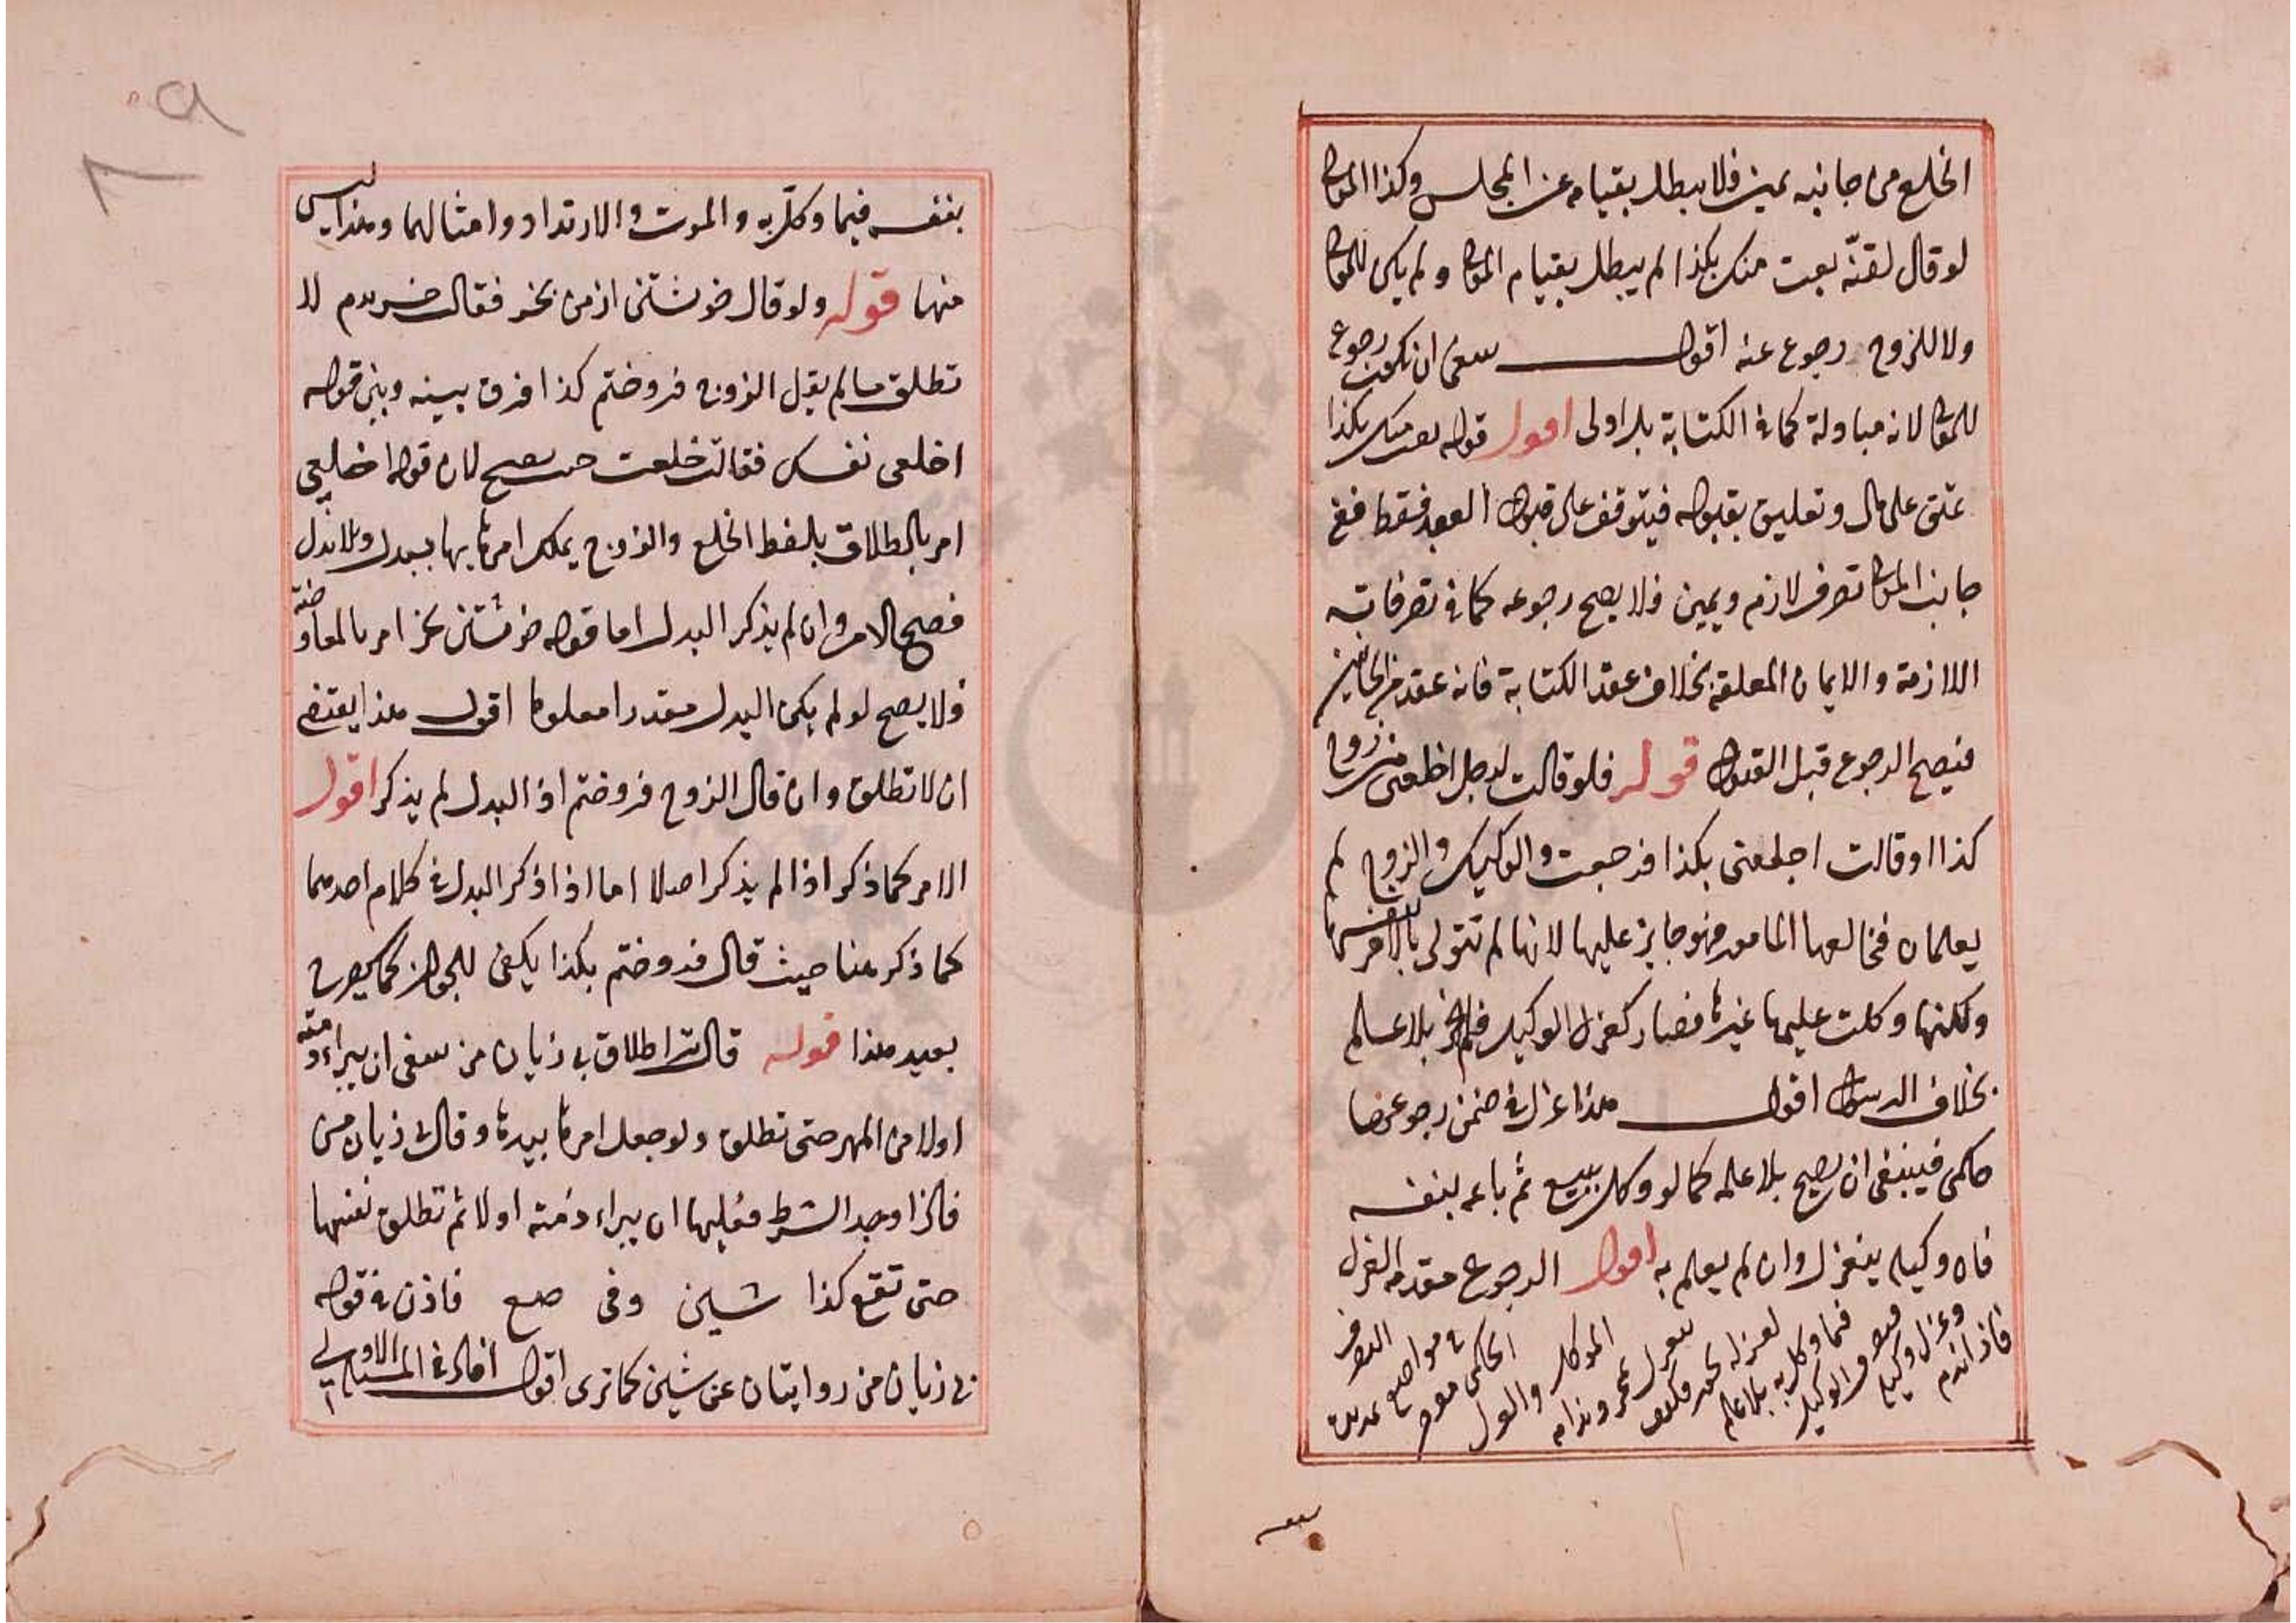 الخلع من جانبه يمين فلا يبطل بقيامه عن المجلس وكذا المولى
لو قال لقنّه بعت منك بكذا لم يبطل بقيام المولى ولم يكن للمولى
ولا للزوج رجوع عنه اقول ينبغى ان يكون رجوع
للمولى لانه مبادلة كما فى الكتابة بل اولى اقول قوله بعت منك بكذا
عتق على مال وتعليق بقبوله فيتوقف على قبول العبد فقط ففى
جانب المولى تصرف لازم ويمين فلا يصح رجوعه كما فى تصرفاته
اللازمة والايمان المعلقة بخلاف عقد الكتابة فانه عقد من الجانبين
فيصح الرجوع قبل القبول قوله فلو قالت لرجل اخلعنى من زوجى
كذا او قالت اخلعنى بكذا فرجعت والوكيل والزوج لم
يعلمان فخالعها المامور فهو جايز عليها لانها لم تتولى بالامر بنفسها
ولكنها وكلت عليها غيرها فصار كعزل الوكيل فلم يجز بلا علم
بخلاف الرسول اقول هذا عزل فى ضمن رجوعها
حكمى فينبغى ان يصح بلا علمه كما لو وكل ببيع ثم باعه بنفسه
فان وكيله ينعزل وان لم يعلم به اقول الرجوع مقدمة العزل
فاذا
وعزل وكيله
الوكيل
فيما وكل به بلا علم
لعزله
الموكل
الحكمى
فى مواضع
بنفسه فيما وكل به والموت والارتداد وامثالهما وهذا ليس
منها قوله ولو قال خوشتنى از من بخر فقالت خريدم لا
تطلق ما لم يقل الزوج فروختم كذا فرق بينه وبين قوله
اخلعى نفسك فقالت خلعت حيث يصح لان قوله اخلعى
امر بالطلاق بلفظ الخلع والزوج يملك امرها بها ببدل وبلا بدل
فصح الامر وان لم يذكر البدل اما قوله خوشتنى بخر امر بالمعاوضة
فلا يصح لو لم يكن البدل مقدرا معلوما اقول هذا يقتضى
ان لا تطلق وان قال الزوج فروختم اذ البدل لم يذكر اقول
الامر كما ذكر اذا لم يذكر اصلا اما اذا ذكر البدل فى كلام احدهما
كما ذكر هنا حيث قال فروختم بكذا يكفى للجواز كما يصرح
بعيد هذا قوله قالت مرا طلاق بى زيان من ينبغى ان يبراء ذمته
اولا من المهر حتى تطلق ولو جعل امرها بيدها وقال بى زيان من
فاذا وجد الشرط فعليها ان يبراء ذمته اولا ثم تطلق نفسها
حتى تقع كذا شين وفى صع فاذن فى قوله
بى زيان من روايتان عن شين كما ترى اقول افاد فى المسئلة الاولى